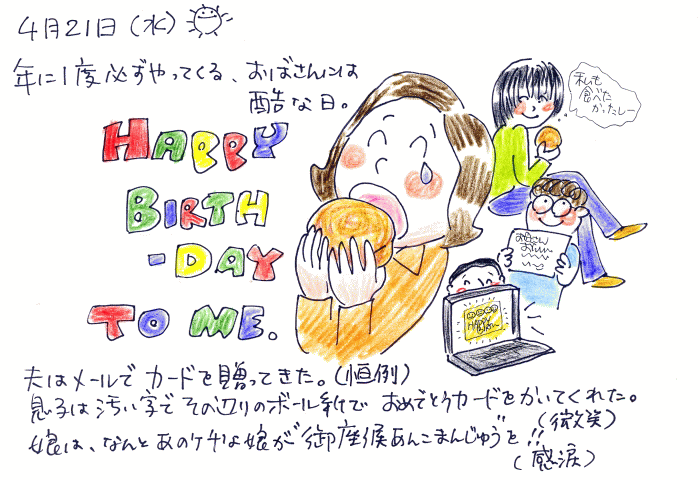 4月21日(水)
年に1度必ずやってくる、おばさんには
酷な日。
HAPPY
BIRTH
-DAY
TO ME.
私も
食べた
かったしー
お母さん
HAPPY
夫はメールでカードを贈ってきた。(恒例)
息子は汚い字でその辺りのボール紙でおめでとうカードをかいてくれた。
(微笑)
娘は、なんとあのケチな娘が御座候あんこまんじゅうを!!
(感涙)